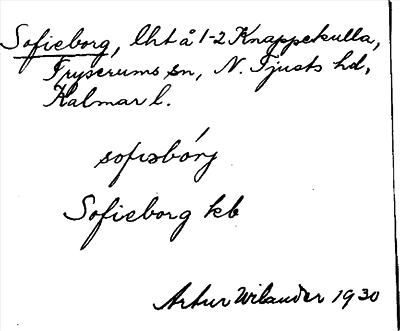 Sofieborg, lht å 1-2 Knappekulla,
Tryserums sn, N. Tjusts hd,
Kalmar l.
sofiəbórj
Sofieborg kb
Artur Wilander 1930